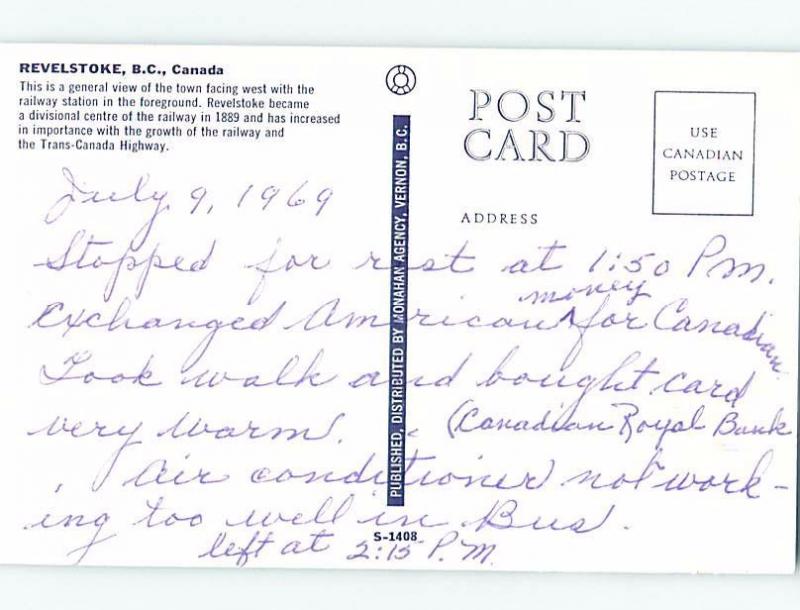 REVELSTOKE, B.C., Canada
This is a general view of the town facing west with the
railway station in the foreground. Revelstoke became
a divisional centre of the railway in 1889 and has increased
in importance with the growth of the railway and
the Trans-Canada Highway.
POST
CARD
USE
CANADIAN
POSTAGE
ADDRESS
PUBLISHED, DISTRIBUTED BY MONAHAN AGENCY, VERNON, B.C.
July 9, 1969
Stopped for rest at 1:50 P.M.
money
exchanged American ^ for Canadian
Took walk and bought card
very warm. (Canadian Royal Bank
Air conditioner not work-
ing too well in Bus.
S-1408
left at 2:15 P.M.